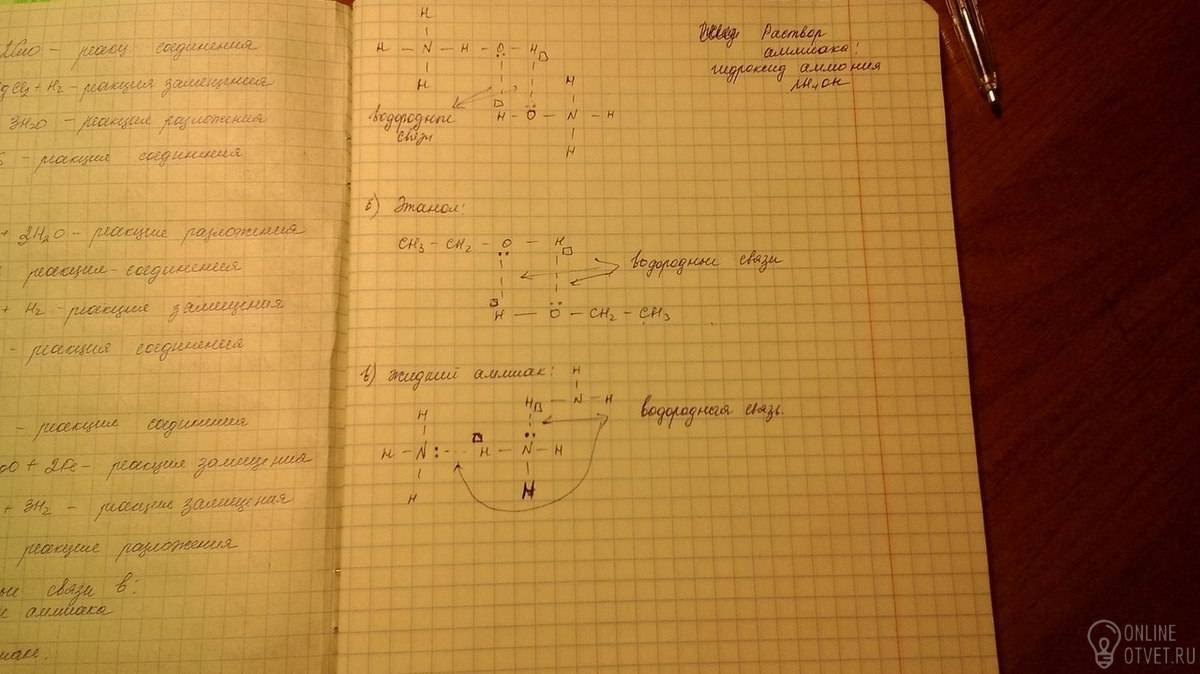 2CuO – реакц соединения
gCl2 + H2 – реакция замещения
3H2O – реакция разложения
– реакция соединения
+ 2H2O – реакция разложения
реакция – соединения
+ H2 – реакция замещения
– реакция соединения
– реакция соединения
+ 2Fe – реакция замещения
+ 3H2 – реакция замещения
реакция разложения
ые связи в:
аммиака
H
H – N – H – O – H
H
H
H – O – N – H
H
водородные
связи
Раствор
аммиака:
гидроксид аммония
NH4OH
б) Этанол:
CH3 – CH2 – O – H
водородные связи
H – O – CH2 – CH3
в) Жидкий аммиак:
H
H – N – H
водородная связь.
H
H – N : H – N – H
H
H
ONLINE
OTVET.RU